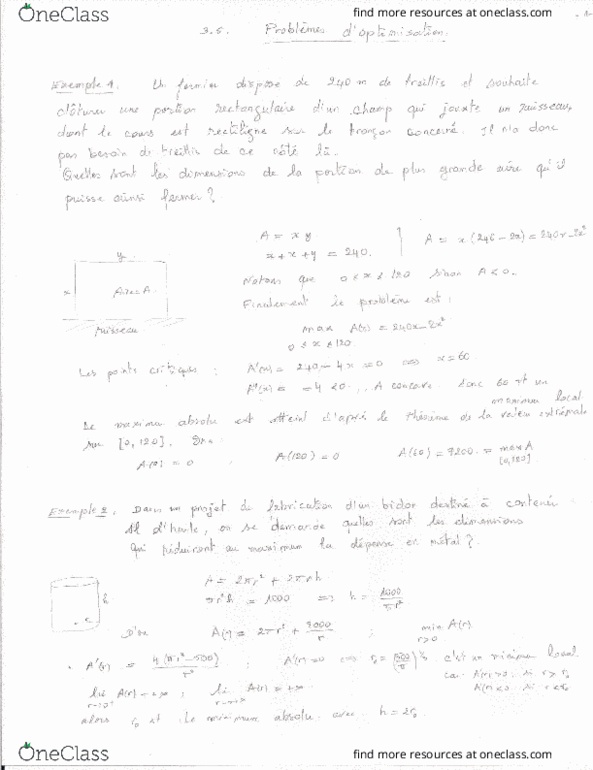 OneClass
find more resources at oneclass.com
3.5. Problèmes d'optimisation.
Exemple 1. Un fermier dispose de 240 m de treillis et souhaite
clôturer une portion rectangulaire d'un champ qui jouxte un ruisseau
dont le cours est rectiligne sur le tronçon concerné. Il n'a donc
pas besoin de treillis de ce côté là.
Quelles sont les dimensions de la portion de plus grande aire qu'il
puisse ainsi fermer?
A = x y
x + x + y = 240.
A = x(240 - 2x) = 240x - 2x²
y
x
Aire A
ruisseau
Notons que 0 ≤ x ≤ 120 sinon A < 0.
Finalement le problème est :
max A(x) = 240x - 2x²
0 ≤ x ≤ 120
Les points critiques : A'(x) = 240 - 4x = 0 ⟺ x = 60
A"(x) = -4 < 0, A concave donc 60 est un
maximum local
Le maximum absolu est atteint d'après le théorème de la valeur extrémale
sur [0, 120].
A(0) = 0 A(120) = 0 A(60) = 7200 = max A
[0,120]
Exemple 2. Dans un projet de fabrication d'un bidon destiné à contenir
1l d'huile, on se demande quelles sont les dimensions
qui réduiront au maximum la dépense en métal?
h
r
A = 2πr² + 2πrh
πr²h = 1000 ⟹ h = 1000/πr²
D'où A(r) = 2πr² + 2000/r ; min A(r)
r>0
A'(r) = 4(πr³-500)/r² ; A'(r) = 0 ⟺ r₀ = (500/π)^⅓ c'est un minimum local
car A'(r) > 0 si r > r₀
A'(r) < 0 si r < r₀
lim A(r) = +∞ ; lim A(r) = +∞
alors r₀ est le minimum absolu avec h = 2r₀
OneClass
find more resources at oneclass.com